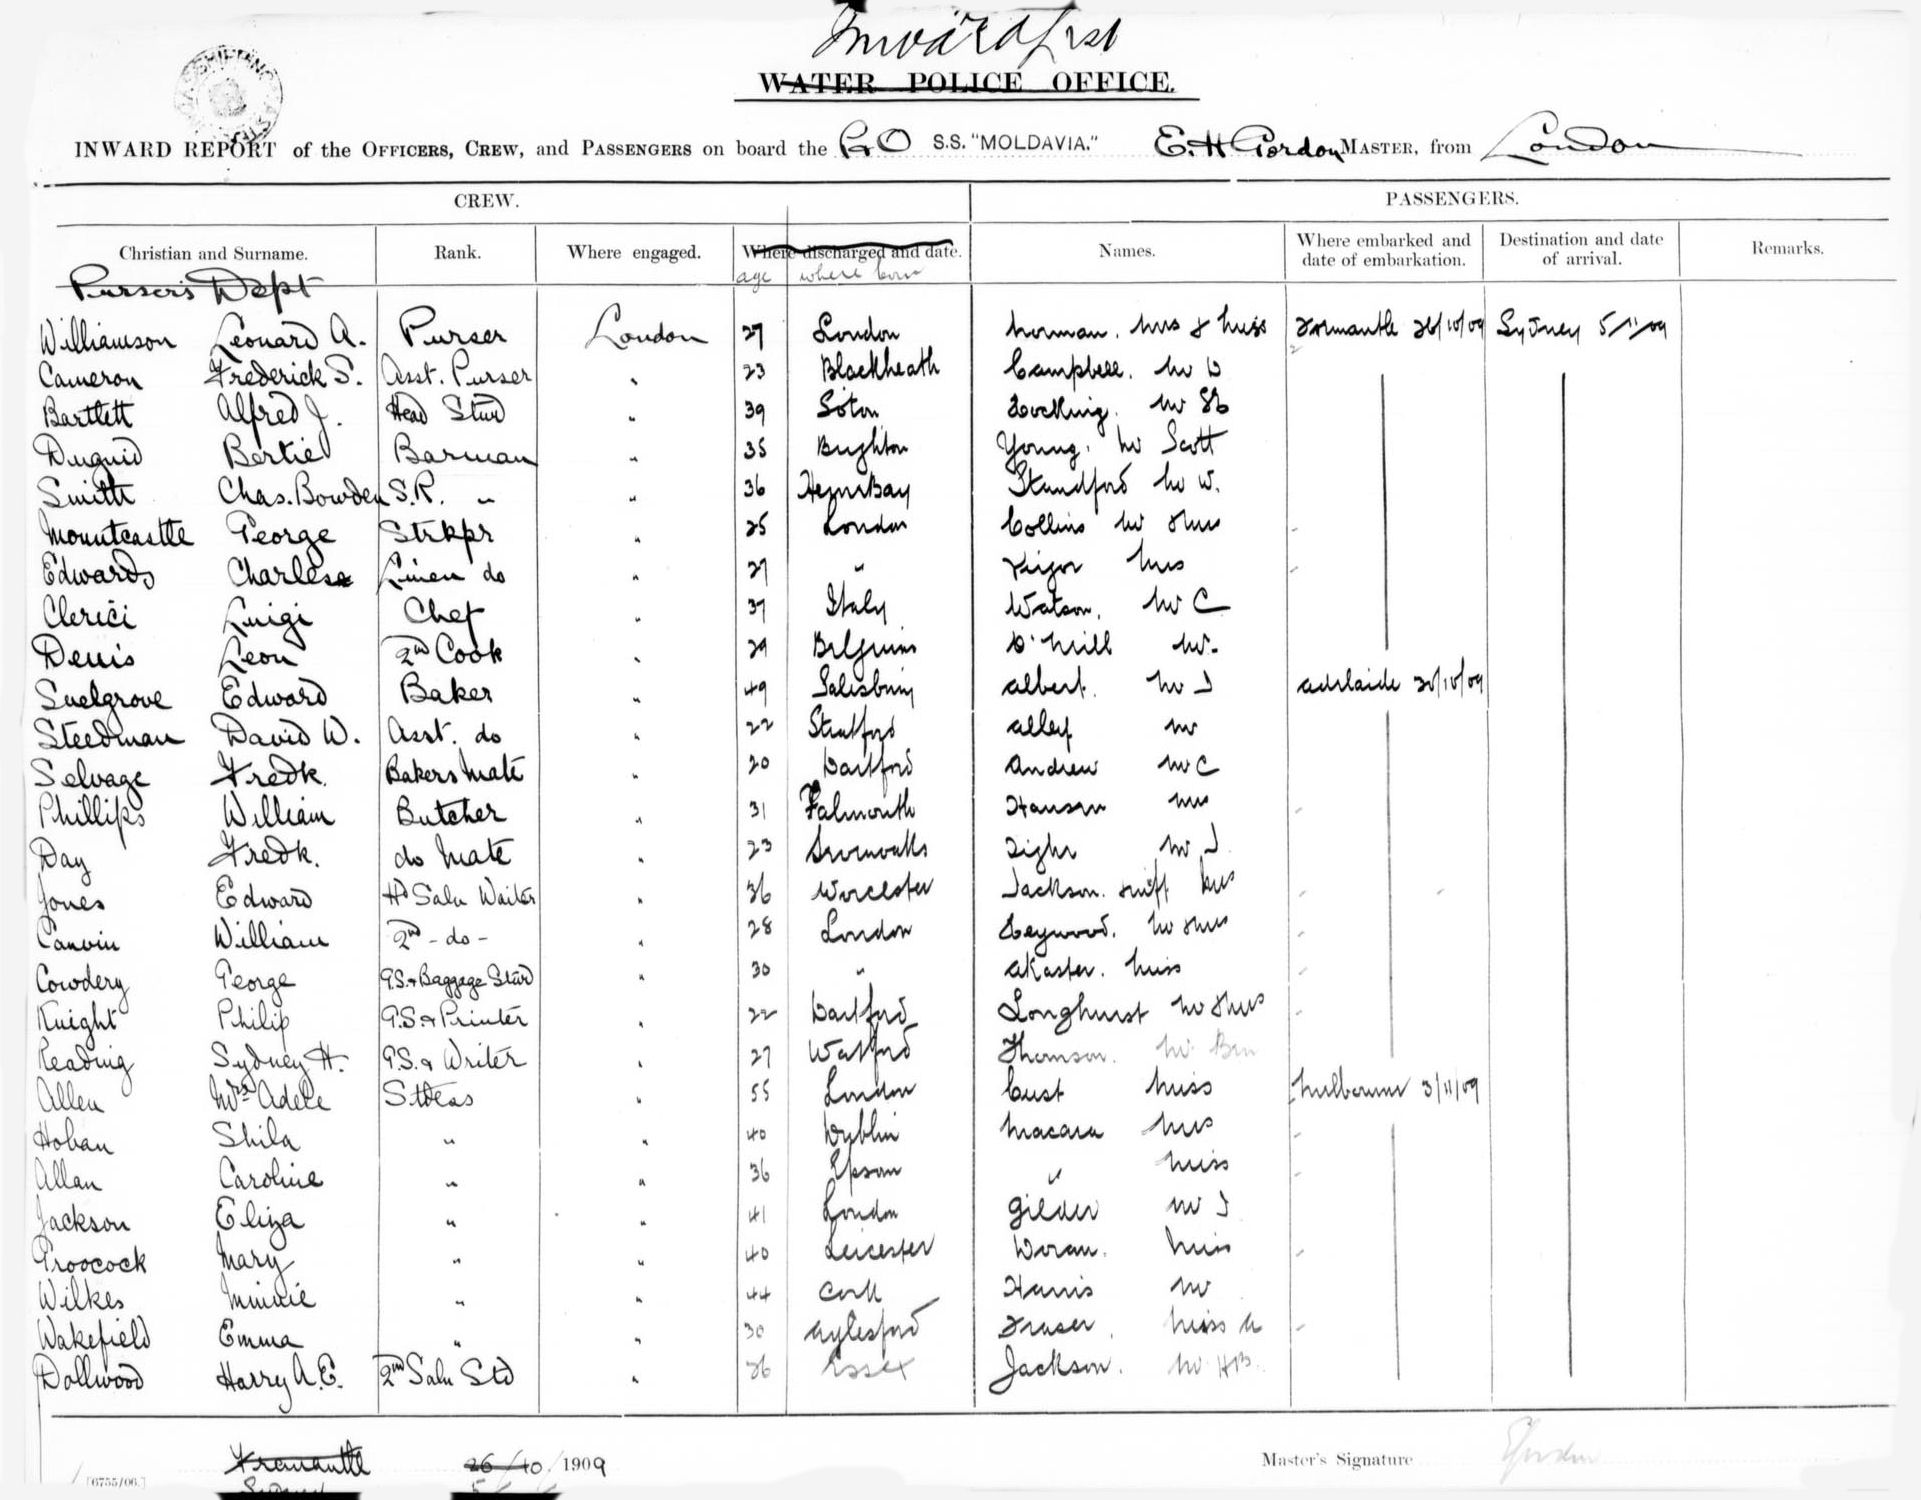 Inward list
WATER POLICE OFFICE.
INWARD REPORT of the OFFICERS, CREW, and PASSENGERS on board the P&O S.S. "MOLDAVIA." E. H Gordon MASTER, from London
CREW. PASSENGERS.
Christian and Surname. Rank. Where engaged. Where discharged and date. Names. Where embarked and date of embarkation. Destination and date of arrival. Remarks.
age where born
Purser's Dept
Williamson Leonard A. Purser London 27 London Norman. Mrs & Miss Fremantle 26/10/09 Sydney 5/11/09
Cameron Frederick S. Asst. Purser " 23 Blackheath Campbell. Mr D
Bartlett Alfred J. Head Stwd " 39 Soton Hocking. Mr
Duguid Bertie Barman " 35 Brighton Young. Mr Scott
Smith Chas. Bowden S.R. " " 36 HerneBay Standford Mr W.
Mountcastle George Strkpr " 25 London Collins Mr & Mrs
Edwards Charles Linen do " 27 " Vigor Mrs
Clerici Luigi Chef " 37 Italy Watson. Mr C
Denis Leon 2nd Cook " 29 Belguim O'Neill Mr.
Snelgrove Edward Baker " 49 Salisbury Albert. Mr J Adelaide 30/10/09
Steedman David W. Asst. do " 22 Stratford Alley Mr
Selvage Fredk. Bakers Mate " 20 Dartford Andrew Mr C
Phillips William Butcher " 31 Falmouth Hanson Mrs
Day Fredk. do Mate " 23 Tighe Mr J
Jones Edward Hd Saln Waiter " 36 Worcester Jackson. Mrs
Canvin William 2nd - do - " 28 London Heywood. Mr & Mrs
Cowdery George G.S. & Baggage Stwd " 30 " Akaster. Miss
Knight Philip G.S. & Printer " 22 Dartford Longhurst Mr & Mrs
Reading Sydney H. G.S. & Writer " 27 Watford Thomson. Mr Ben
Allen Mrs Adele Stdess " 55 London Cust Miss Melbourne 3/11/09
Hoban Shila " " 40 Dublin Macara Mrs
Allan Caroline " " 36 Epsom " Miss
Jackson Eliza " " 41 London Gilder Mr J
Proocock Mary " " 40 Leicester Doran. Miss
Wilkes Minnie " " 44 Cork Harris Mr
Wakefield Emma " " 30 Aylesford Fraser. Miss A
Dollwood Harry A. E. 2nd Saln Std " 26 Essex Jackson. Mr HB.
Fremantle 26/10/1909 Master's Signature
[6755/06.]
Sydney